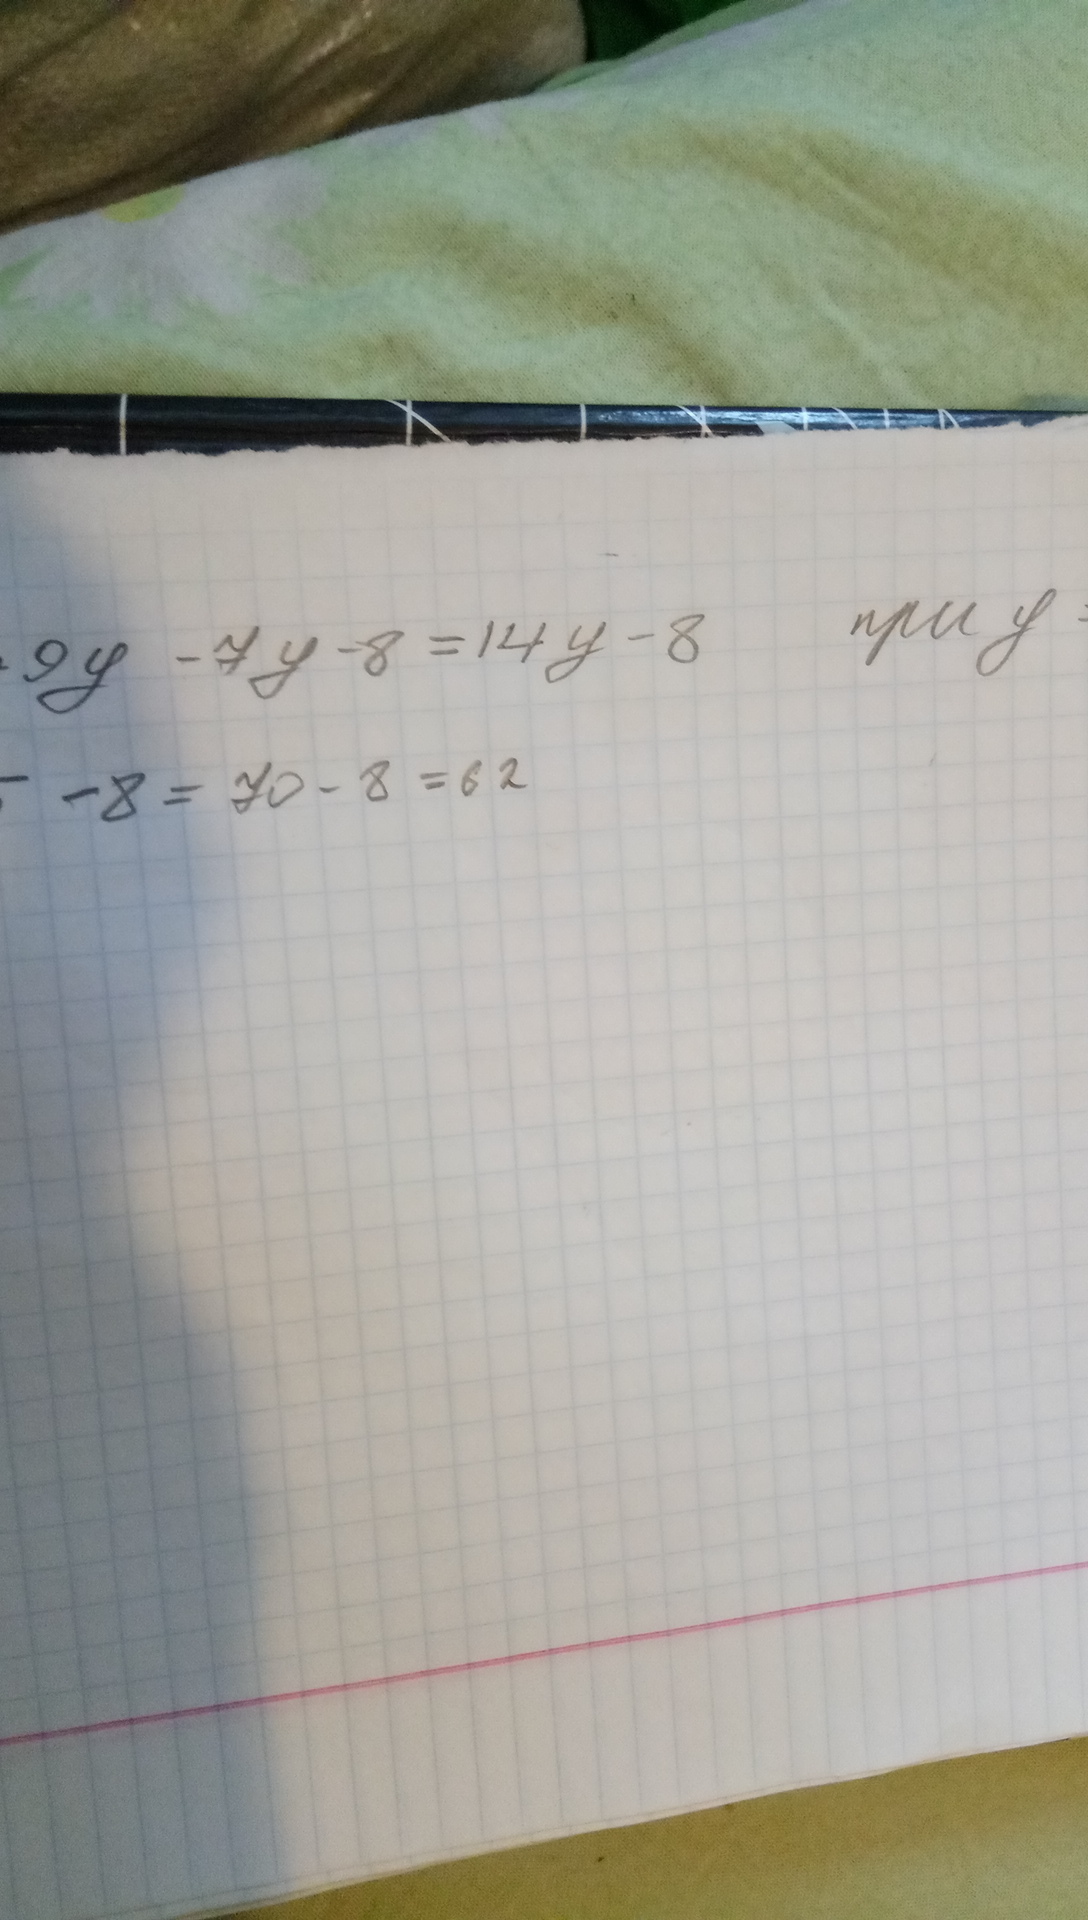 +9y -7y -8 = 14y - 8 при y =
5 - 8 = 70 - 8 = 62